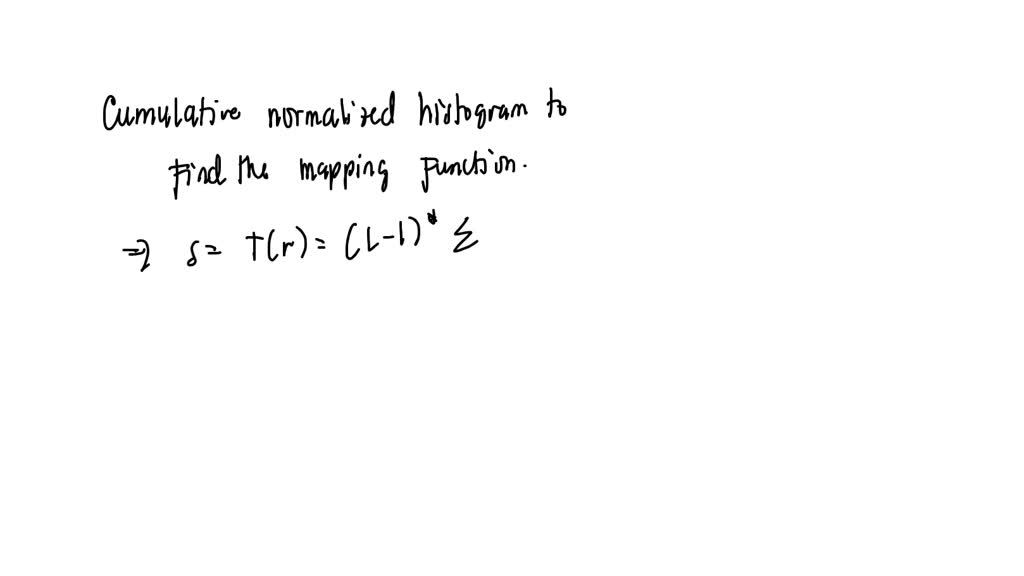 Cumulative normalized histogram to
find the mapping function.
⇒ s = T(r) = (L-1)* Σ